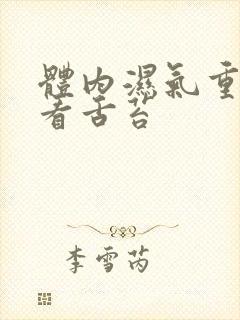 體內濕氣重
看舌苔
李雪芮